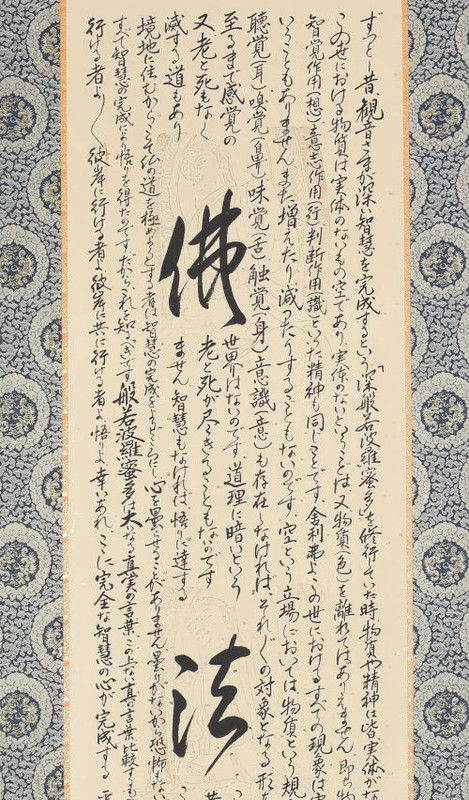 ずっと昔、観音さまが深い智慧を完成するという「深般若波羅蜜多」を修行していた時、物質や精神は皆、実体がな
この世における物質は実体のないもの(空)であり、実体のないということは又物質(色)を離れてはありえません。即ち物
智覚作用(想)意志作用(行)判断作用(識)といった精神も同じことです。舎利弗よこの世におけるすべての現象は
いうこともありません。また、増えたり減ったりすることもないのです。空という立場においては、物質という規
聴覚(耳)嗅覚(鼻)味覚(舌)触覚(身)意識(意)も存在しなければ、それぞれの対象となる形
至るまで感覚の世界はないのです。道理に暗いという
又老と死もなく老と死が尽きることもないのです
滅する道もありません智慧もなければ悟りに達する
境地に住むからこそ仏の道を極めようとする者は智慧の完成をよりどころに心を曇らせることがありません。曇りがないから恐怖もない
すべて智慧の完成により悟りを得たのです。だからこれを知るべきです般若波羅蜜多は大なる真実の言葉この上ない真の言葉比較するも
行ける者よ彼岸に行ける者よ彼岸に共に行ける者よ悟りよ幸いあれ、ここに完全な智慧の心が完成する
佛
法